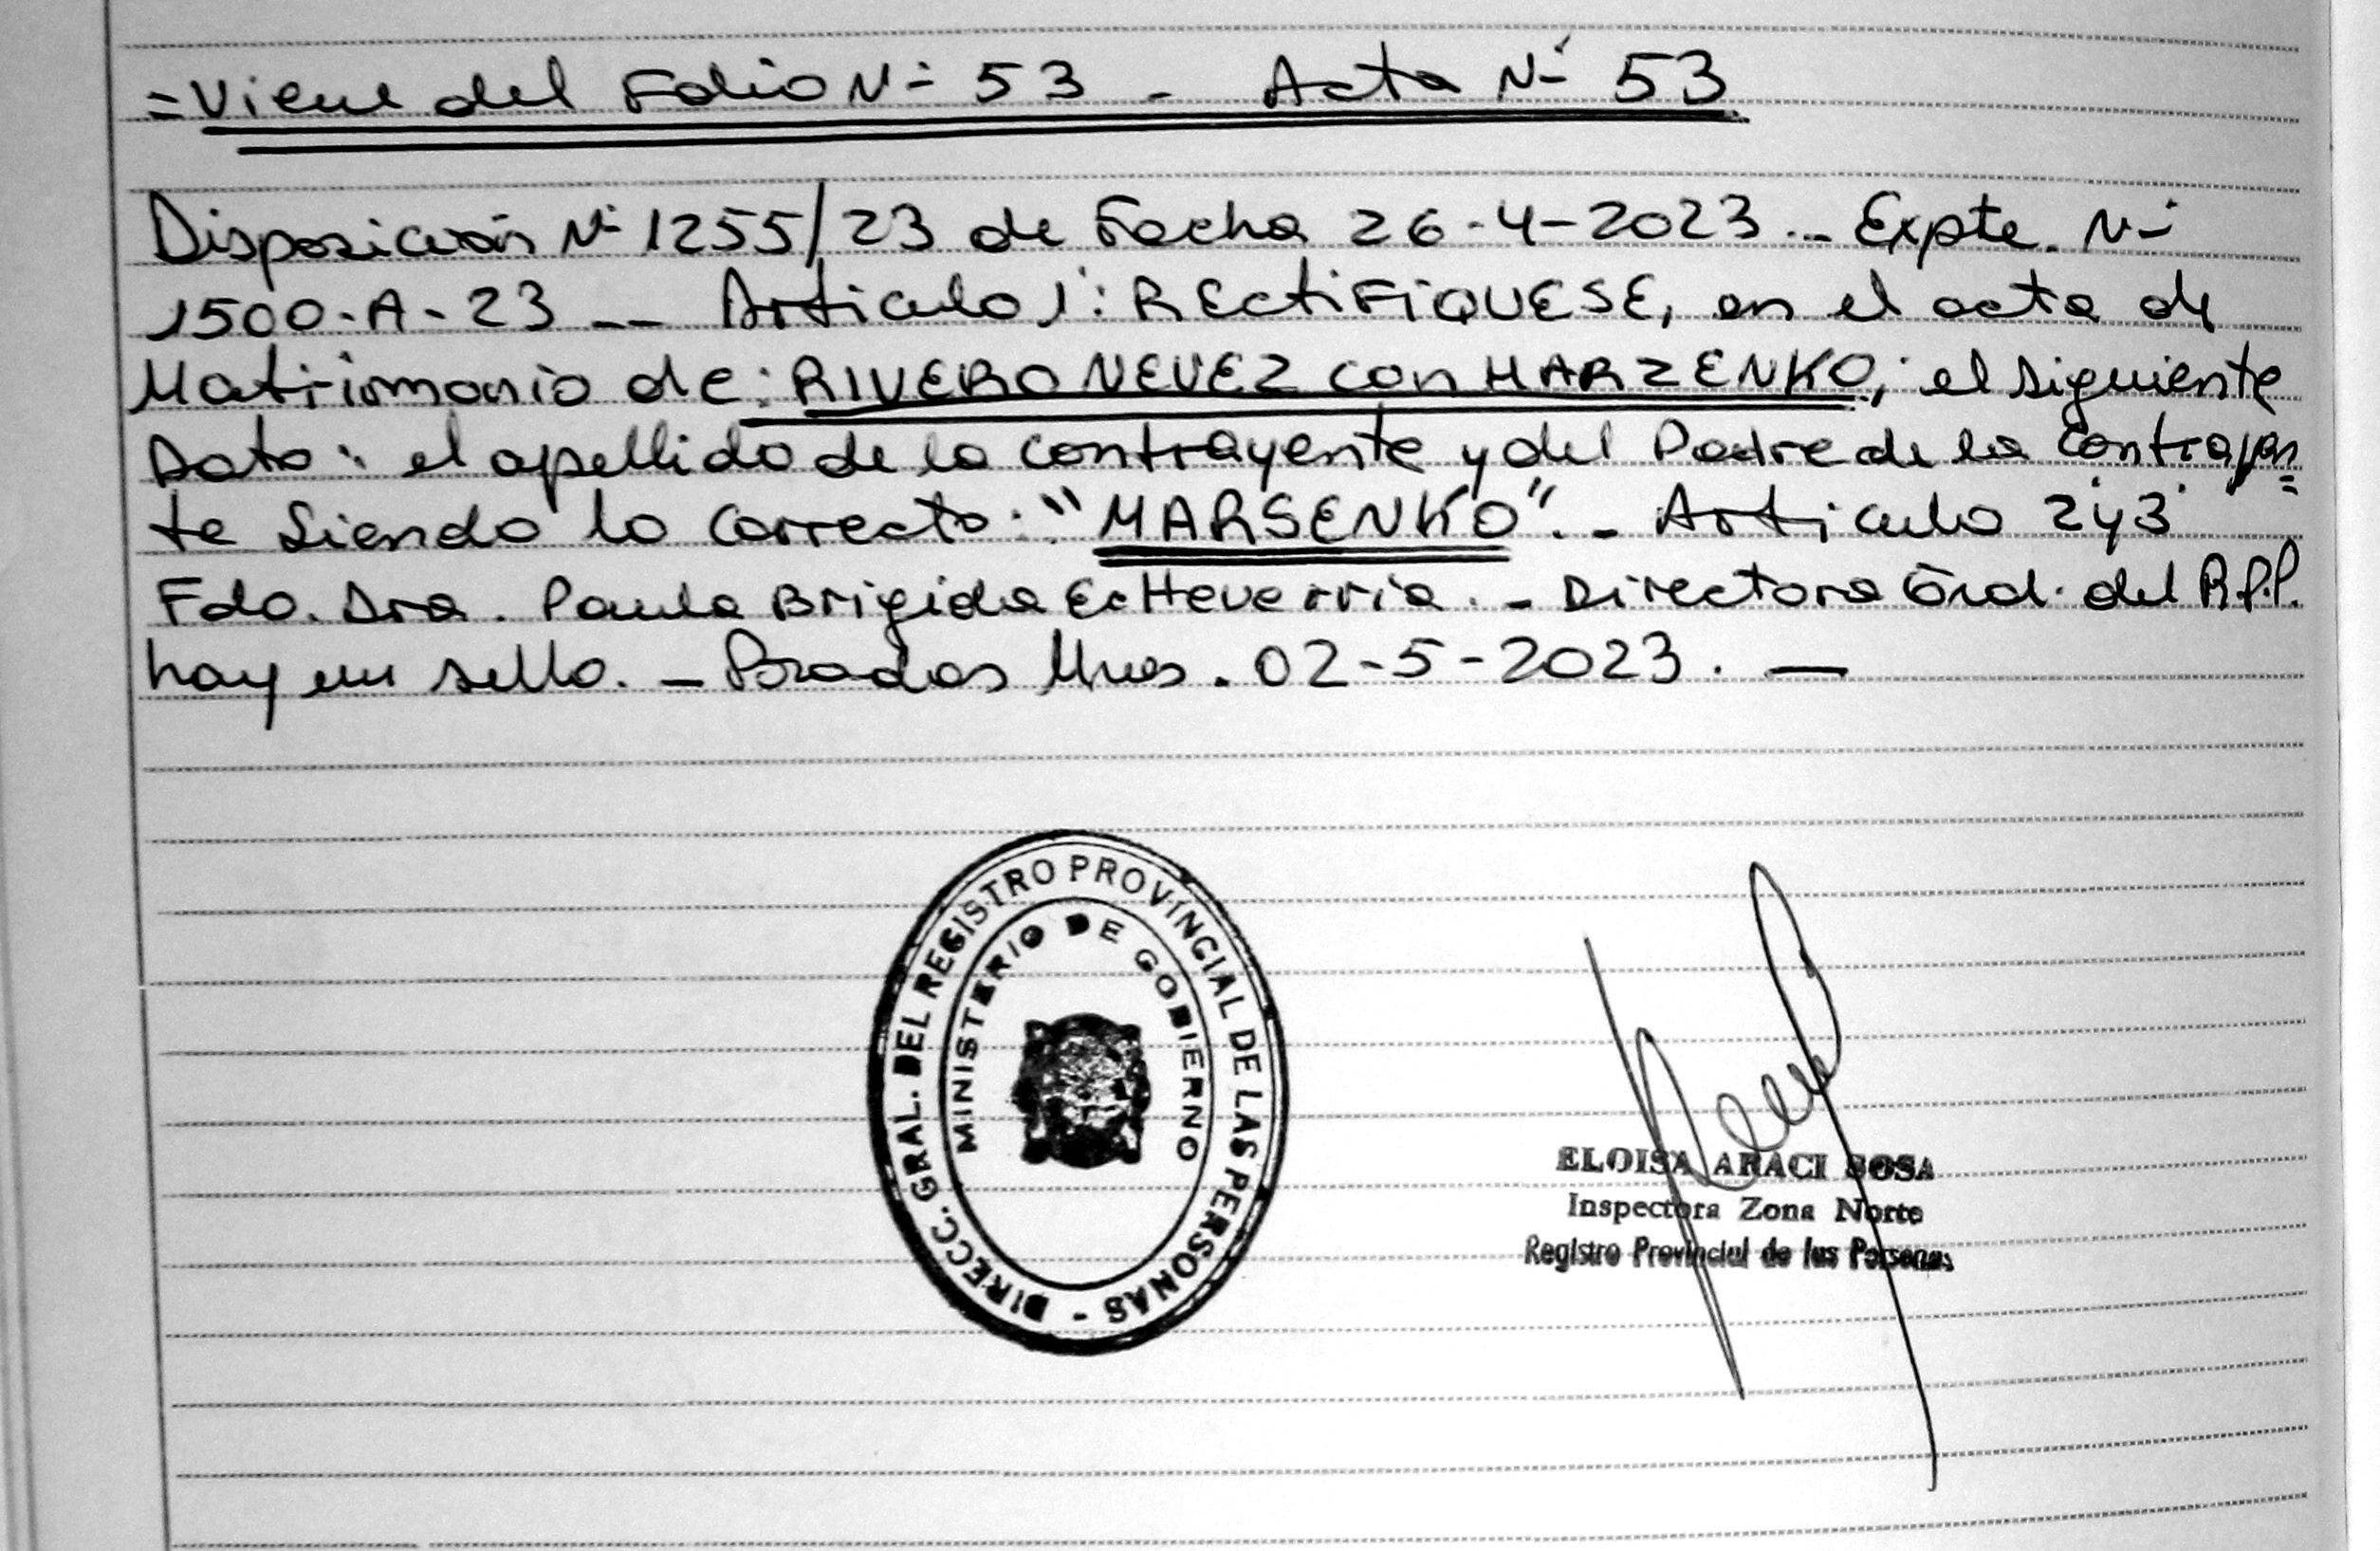 =Viene del Folio Nº 53 - Acta Nº 53
Disposición Nº 1255/23 de Fecha 26-4-2023.- Expte. Nº
1500-A-23 -- Articulo 1º: RECTIFIQUESE, en el acta de
Matrimonio de: RIVERO NEVEZ con MARZENKO, el siguiente
Dato: el apellido de la contrayente y del Padre de la Contrayen=
te Siendo lo Correcto: "MARSENKO".- Articulo 2 y 3
Fdo. Dra. Paula Brigida Ectteverria.- Directora Gral. del R.P.P.
hay un sello.- Posadas Mnes. 02-5-2023. —
DIRECC. GRAL. DEL REGISTRO PROVINCIAL DE LAS PERSONAS -
MINISTERIO DE GOBIERNO
ELOISA ARACI SOSA
Inspectora Zona Norte
Registro Provincial de las Personas